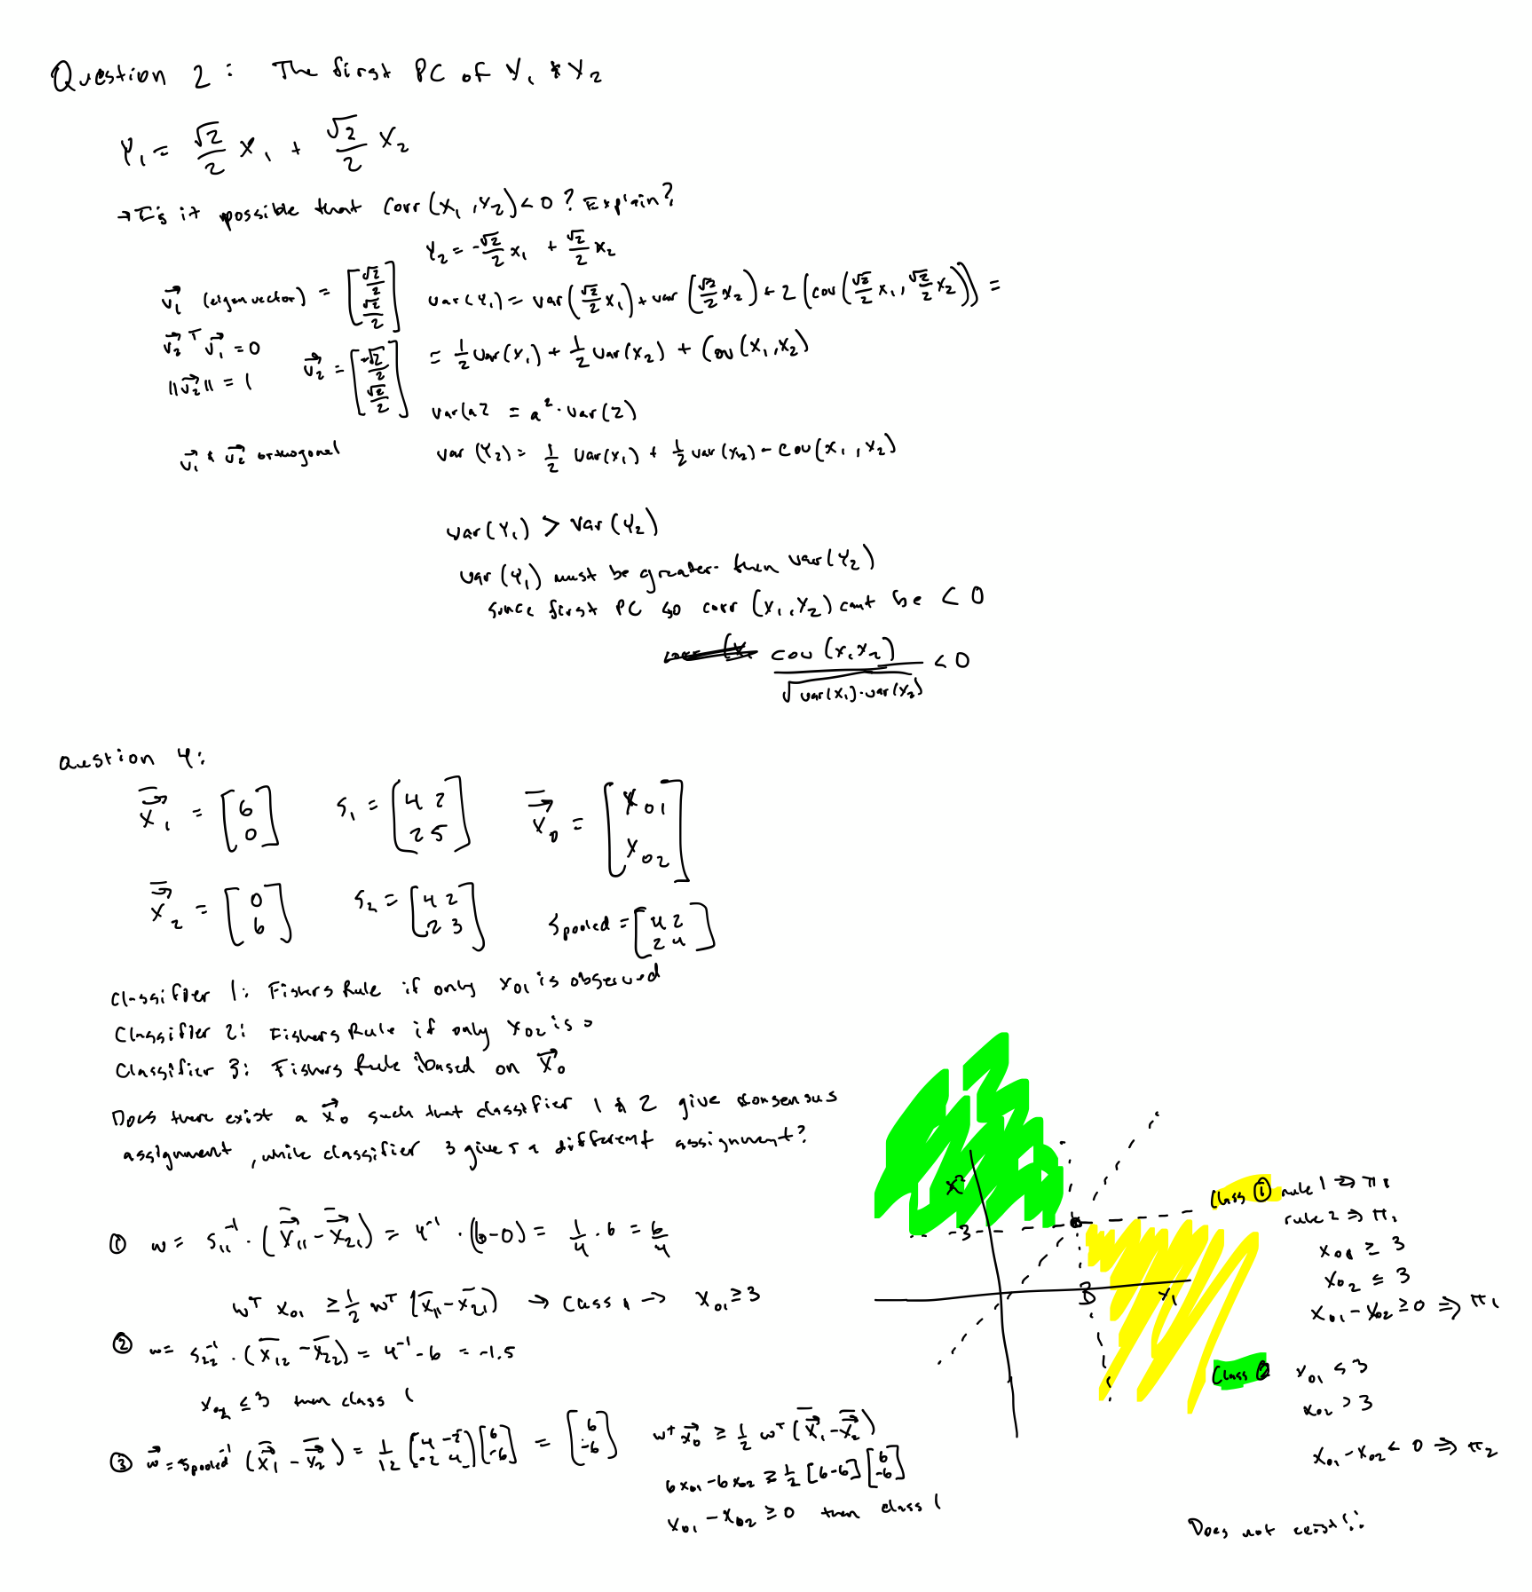 Question 2: The first PC of Y₁ & Y₂
Y₁ = √2/2 X₁ + √2/2 X₂
→ Is it possible that Corr(X₁, X₂) < 0? Explain?
Y₂ = -√2/2 X₁ + √2/2 X₂
v⃗₁ (eigenvector) = [√2/2; √2/2]
var(Y₁) = var(√2/2 X₁) + var(√2/2 X₂) + 2(cov(√2/2 X₁, √2/2 X₂)) =
v⃗₂ᵀ v⃗₁ = 0
= 1/2 Var(X₁) + 1/2 Var(X₂) + Cov(X₁, X₂)
||v⃗₂|| = 1
v⃗₂ = [-√2/2; √2/2]
var(aZ = a² · var(Z)
v⃗₁ & v⃗₂ orthogonal
var(Y₂) = 1/2 Var(X₁) + 1/2 var(X₂) - cov(X₁, X₂)
var(Y₁) > Var(Y₂)
var(Y₁) must be greater then var(Y₂)
since first PC so corr(X₁, X₂) cant be < 0
cov(X₁X₂) / √var(X₁)·var(X₂) < 0
Question 4:
X̄⃗₁ = [6; 0] S₁ = [4 2; 2 5] X̄⃗₀ = [X₀₁; X₀₂]
X̄⃗₂ = [0; 6] S₂ = [4 2; 2 3] Spooled = [4 2; 2 4]
Classifier 1: Fishers Rule if only X₀₁ is observed
Classifier 2: Fishers Rule if only X₀₂ is o
Classifier 3: Fishers Rule based on X⃗₀
Does there exist a X⃗₀ such that classifier 1 & 2 give consensus
assignment, while classifier 3 gives a different assignment?
① w = S₁₁⁻¹ · (X̄⃗₁₁ - X̄⃗₂₁) = 4⁻¹ · (6-0) = 1/4 · 6 = 6/4
wᵀ X₀₁ ≥ 1/2 wᵀ (X̄₁₁ - X̄₂₁) → Cass 1 → X₀₁ ≥ 3
② w = S₂₂⁻¹ · (X̄₁₂ - X̄₂₂) = 4⁻¹ - 6 = -1.5
X₀₂ ≤ 3 then class 1
③ w⃗ = Spooled⁻¹ (X̄⃗₁ - X̄⃗₂) = 1/12 [4 -2; -2 4] [6; -6] = [6; -6]
wᵀ X⃗₀ ≥ 1/2 wᵀ (X̄⃗₁ - X̄⃗₂)
6X₀₁ - 6X₀₂ ≥ 1/2 [6 -6] [6; -6]
X₀₁ - X₀₂ ≥ 0 then class 1
X²
3
3
X₁
Class ① rule 1 ⇒ π₁
rule 2 ⇒ π₁
X₀₁ ≥ 3
X₀₂ ≤ 3
X₀₁ - X₀₂ ≥ 0 ⇒ π₁
Class ②
X₀₁ ≤ 3
X₀₂ > 3
X₀₁ - X₀₂ < 0 ⇒ π₂
Does not exist!